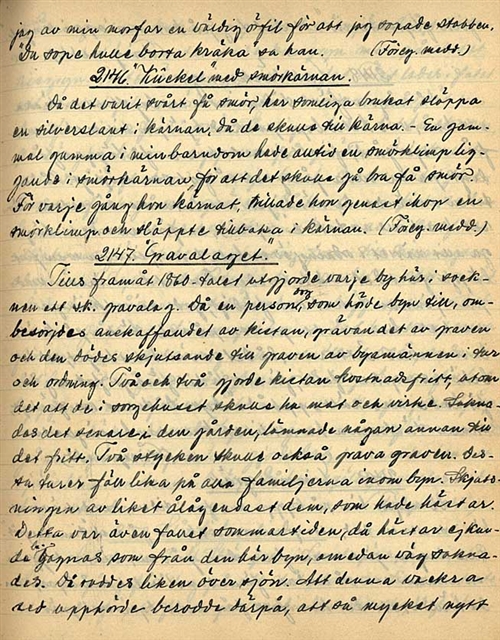 jag av min morfar en väldig örfil för att jag sopade stabben.
"Du sope hulle borta kråka" sa han. (Föreg. medd.)
2146. "Kückel" med smörkärnan.
Då det varit svårt få smör, har somliga brukat släppa
en silverslant i kärnan, då de skulle till kärna. - En gam-
mal gumma i min barndom hade alltid en smörklimp lig-
gande i smörkärnan, för att det skulle gå bra få smör.
För varje gång hon kärnat, trillade hon genast ihop en
smörklimp och släppte tillbaka i kärnan. (Föreg. medd.)
2147. "Gravalaget."
Tills framåt 1860-talet utgjorde varje by här i sock-
nen ett sk. gravalag. Då en person dog, som hörde byn till, om-
besörjdes anskaffandet av kistan, grävandet av graven
och den dödes skjutsande till graven av bymännen i tur
och ordning. Två och två gjorde kistan kostnadsfritt, utom
det att de i sorgehuset skulle ha mat och virke. Sakna-
des det senare i den gården, lämnade någon annan till
det fritt. Två stycken skulle också grava graven. Des-
sa turer föll lika på alla familjerna inom byn. Skjuts-
ningen av liket ålåg endast dem, som hade hästar.
Detta var även fallet sommartiden, då hästar ej kun-
de begagnas som från den här byn, emedan väg sakna-
des. Då roddes liken över sjön. Att denna vackra
sed upphörde berodde därpå, att så mycket nytt